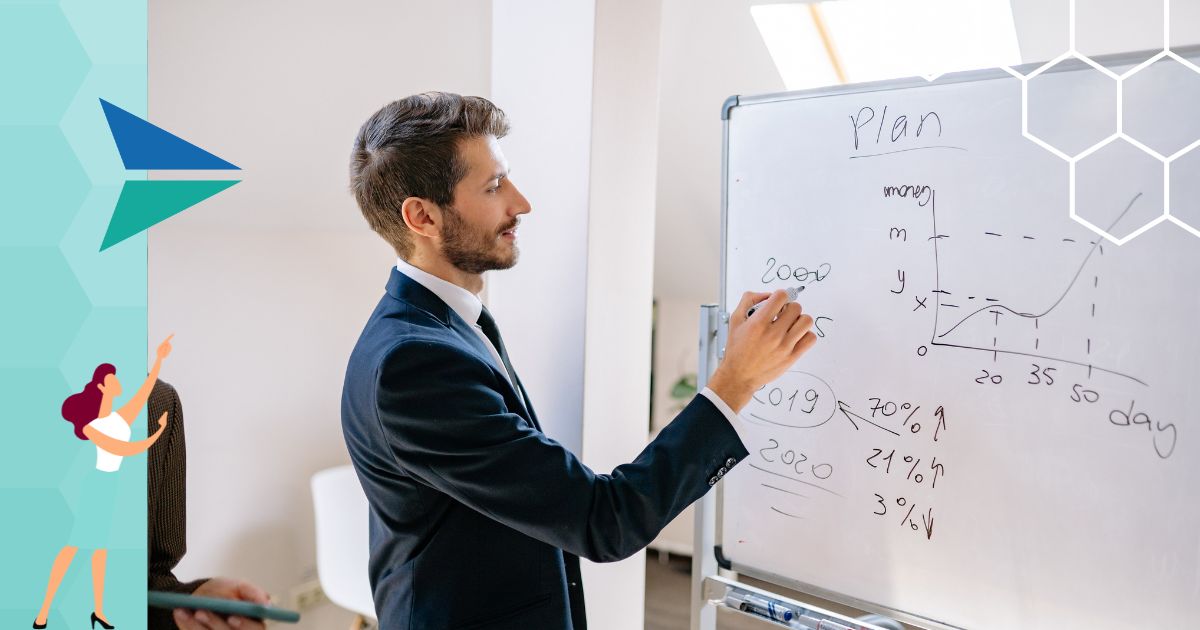 Plan
money
m
y
x
0
20 35 50
day
2000
5
2019
2020
70% ↑
21% ↑
3% ↓